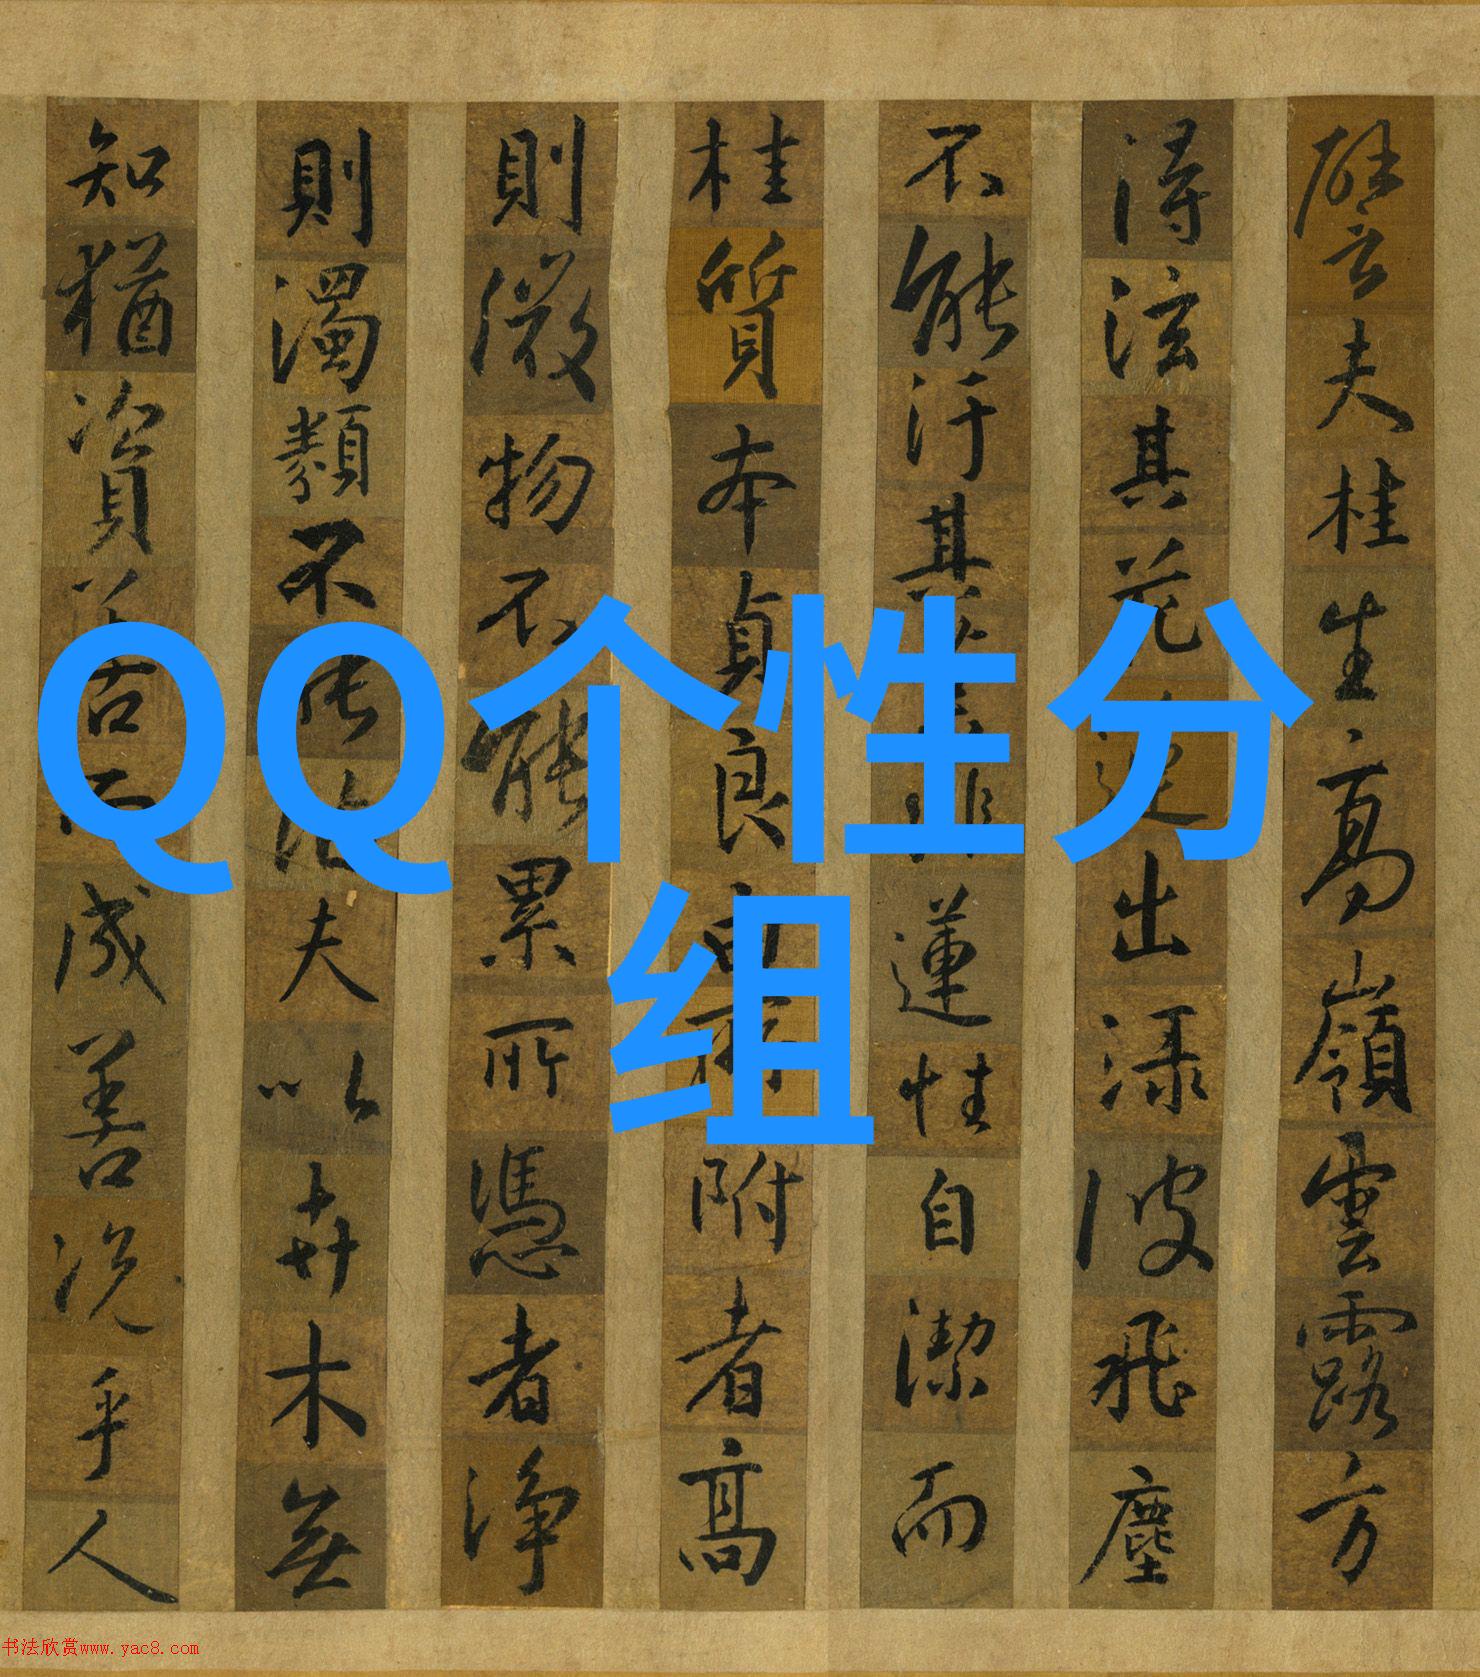 譬夫桂生高嶺雲露方
得泫其花蓮出渌波飛塵
不能汙其葉非蓮性自潔而
桂質本貞良由所附者高
則微物不能累所憑者淨
則濁類不能沾夫以卉木無
知猶資善而成善況乎人
QQ个性分
组
书法欣赏www.yac8.com